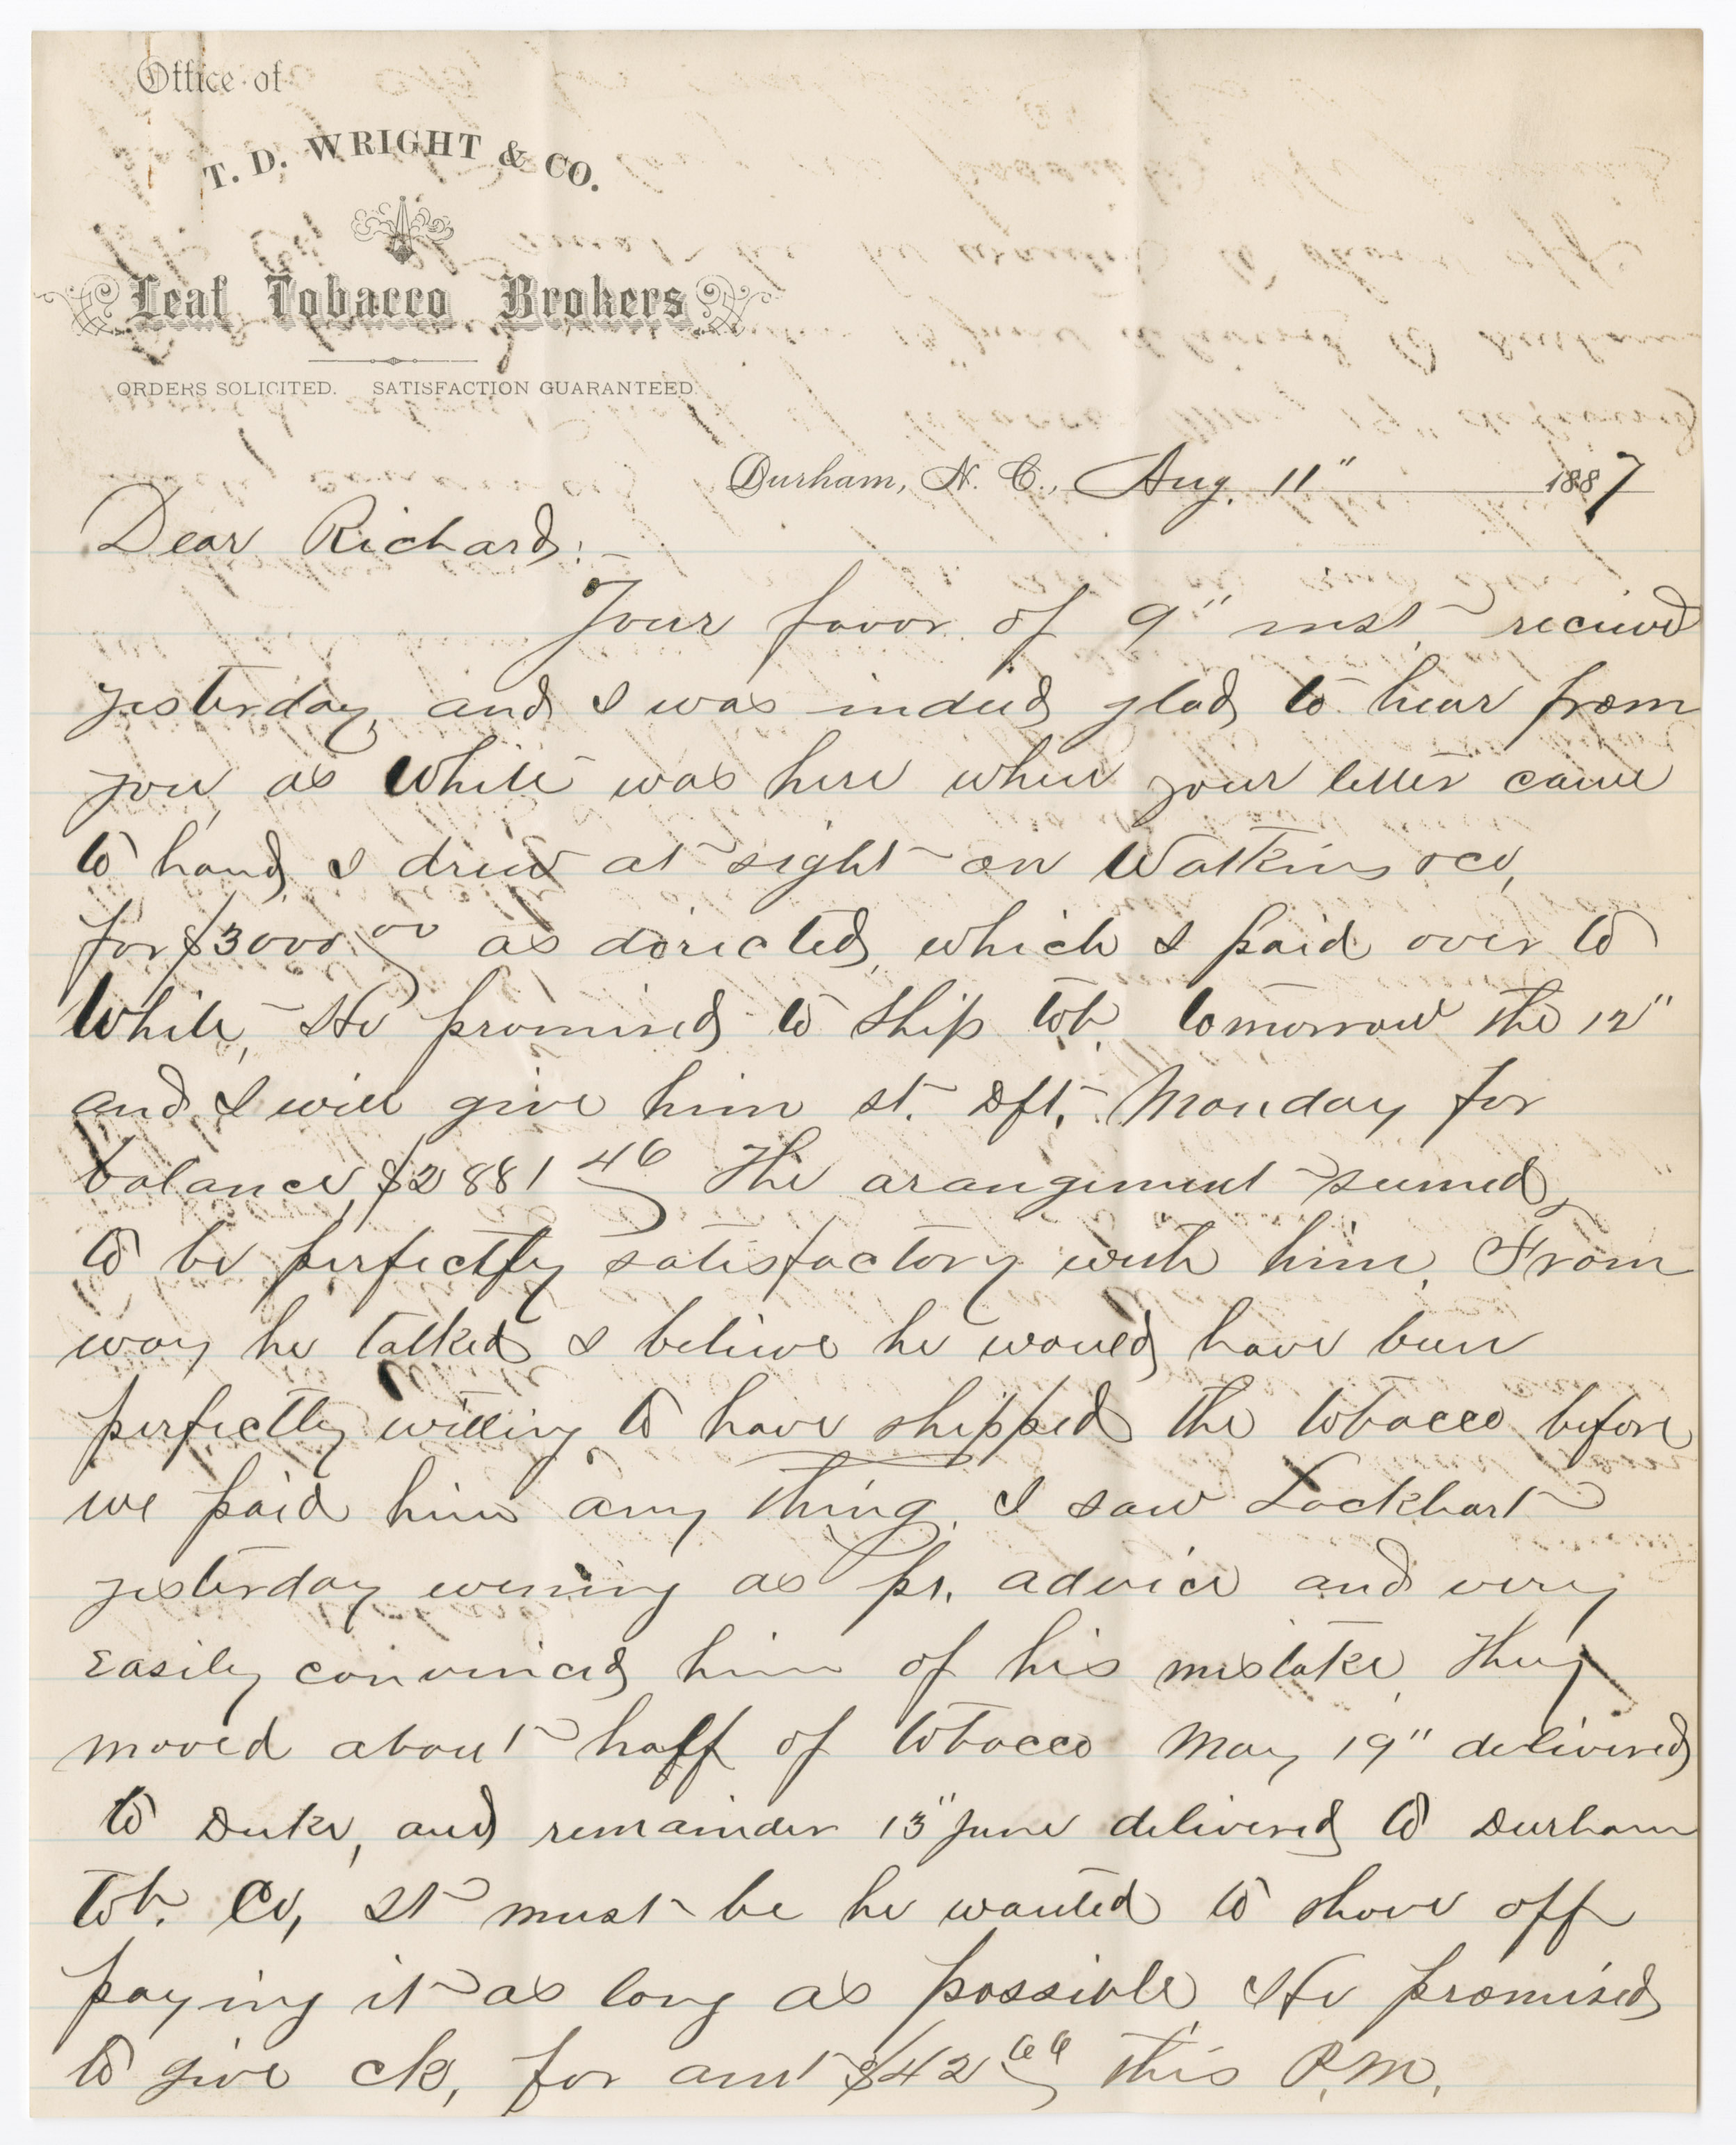 Office of
T. D. WRIGHT & CO.
Leaf Tobacco Brokers
ORDERS SOLICITED. SATISFACTION GUARANTEED.
Durham, N. C., Aug. 11" 1887
Dear Richard:-
Your favor of 9" inst. recieved
yesterday, and I was indeed glad to hear from
you, as White was here when your letter came
to hand, I drew at sight on Watkins &co,
for $3000.00 as directed, which I paid over to
White, He promised to ship tob. tomorrow the 12"
and I will give him st. Dft. Monday for
balance, $2881 46 The arangement seemed,
to be perfectly satisfactory with him. From
way he talked I believe he would have been
perfectly willing to have shipped the tobacco before
we paid him any thing. I saw Lockhart
yesterday evening as pr. advice and very
easily convinced him of his mistake. They
moved about half of tobacco May 19" delivered
to Duke, and remainder 13" June delivered to Durham
Tob. Co, It must be he wanted to shove off
paying it as long as possible. He promised
to give ck, for amt $42 66 this P.M.